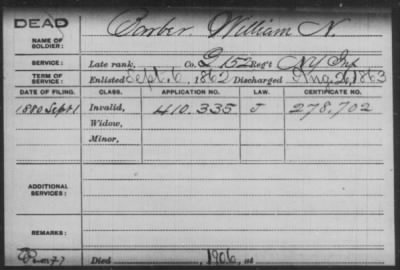 DEAD
NAME OF SOLDIER: Barber, William N.
SERVICE: Late rank, Co. G 152 Reg't NY Inf
TERM OF SERVICE: Enlisted Sept. 6, 1862 Discharged Aug. 26, 1863
DATE OF FILING. CLASS. APPLICATION NO. LAW. CERTIFICATE NO.
1880 Sept 1 Invalid, 410.335 J 278,702
Widow,
Minor,
ADDITIONAL SERVICES:
REMARKS:
Died , 1906, at